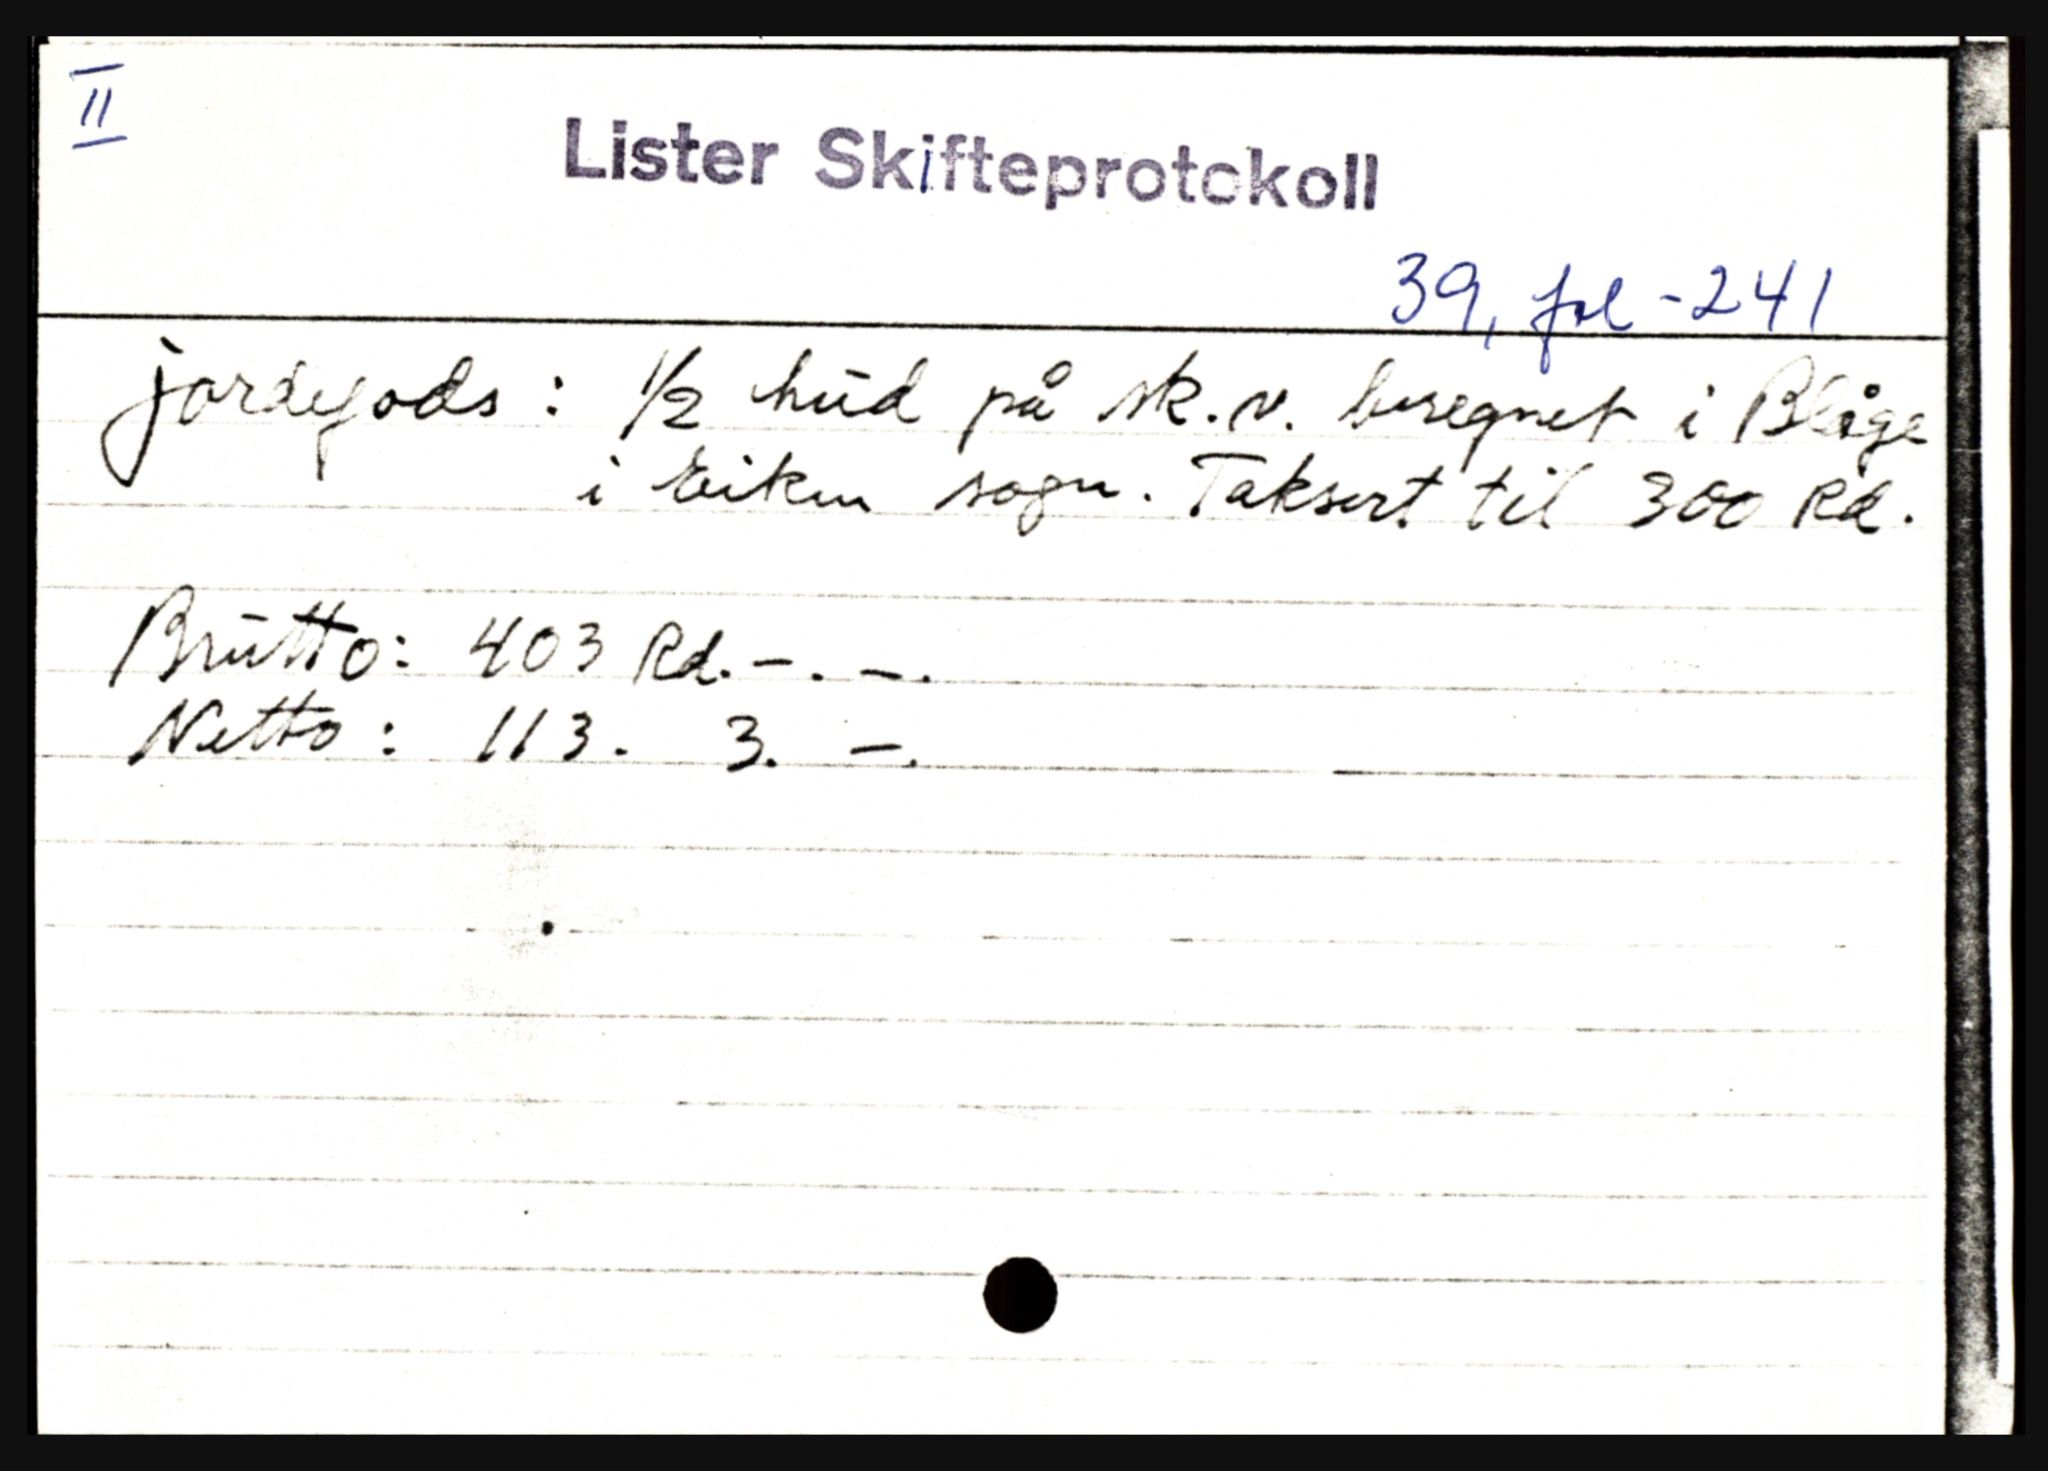 II
Lister Skifteprotokoll
39, fol - 241
jordegods: 1/2 hud på sk.v. beregnet i Blåge
i Eiken sogn. Taksert til 300 Rd.
Brutto: 403 Rd. -. -.
Netto: 113. 3. -.